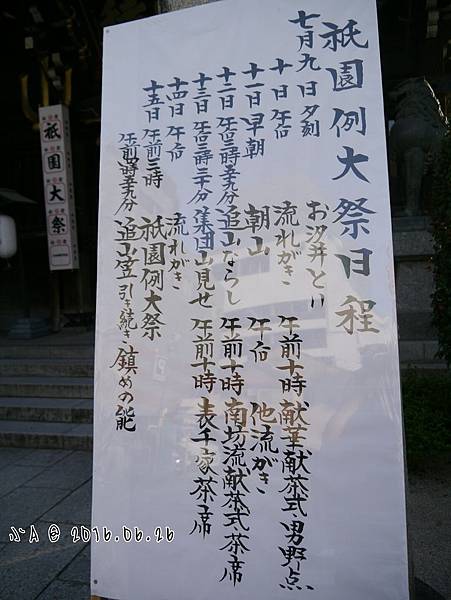 祇園例大祭日程
七月九日 夕刻 お汐井とり
十日 午后 流れがき 午前十時 献華献茶式 男野点
十一日 早朝 朝山 午后 他流がき
十二日 午后三時五十九分 追山ならし 午前十時 南坊流献茶式茶席
十三日 午后三時三十分 集団山見せ 午前十時 表千家茶席
十四日 午后 流れがき
十五日 午前三時 祇園例大祭
午前四時五十九分 追山笠 引き続き 鎮めの能
祇園大祭
小A @ 2016.06.26